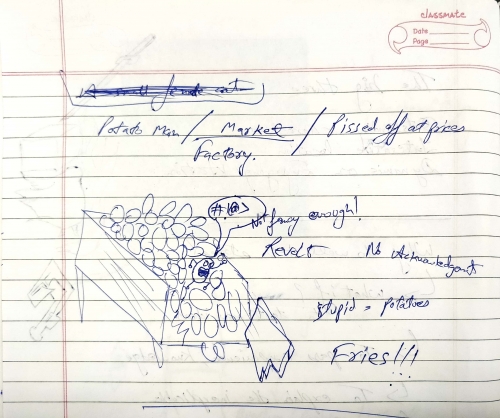 classmate
Date
Page
Potato Man / Market / Pissed off at prices
Factory.
#!@>
Not fancy enough!
Revolt No Acknowledgment
Stupid = potatoes
Fries!!!